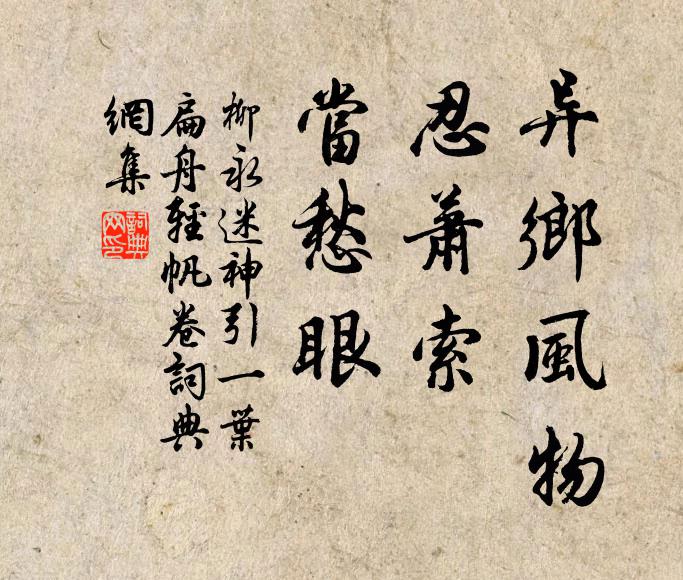 异鄉風物
忍蕭索
當愁眼
柳永迷神引一葉
扁舟輕帆卷詞典
網集
詞典
网印